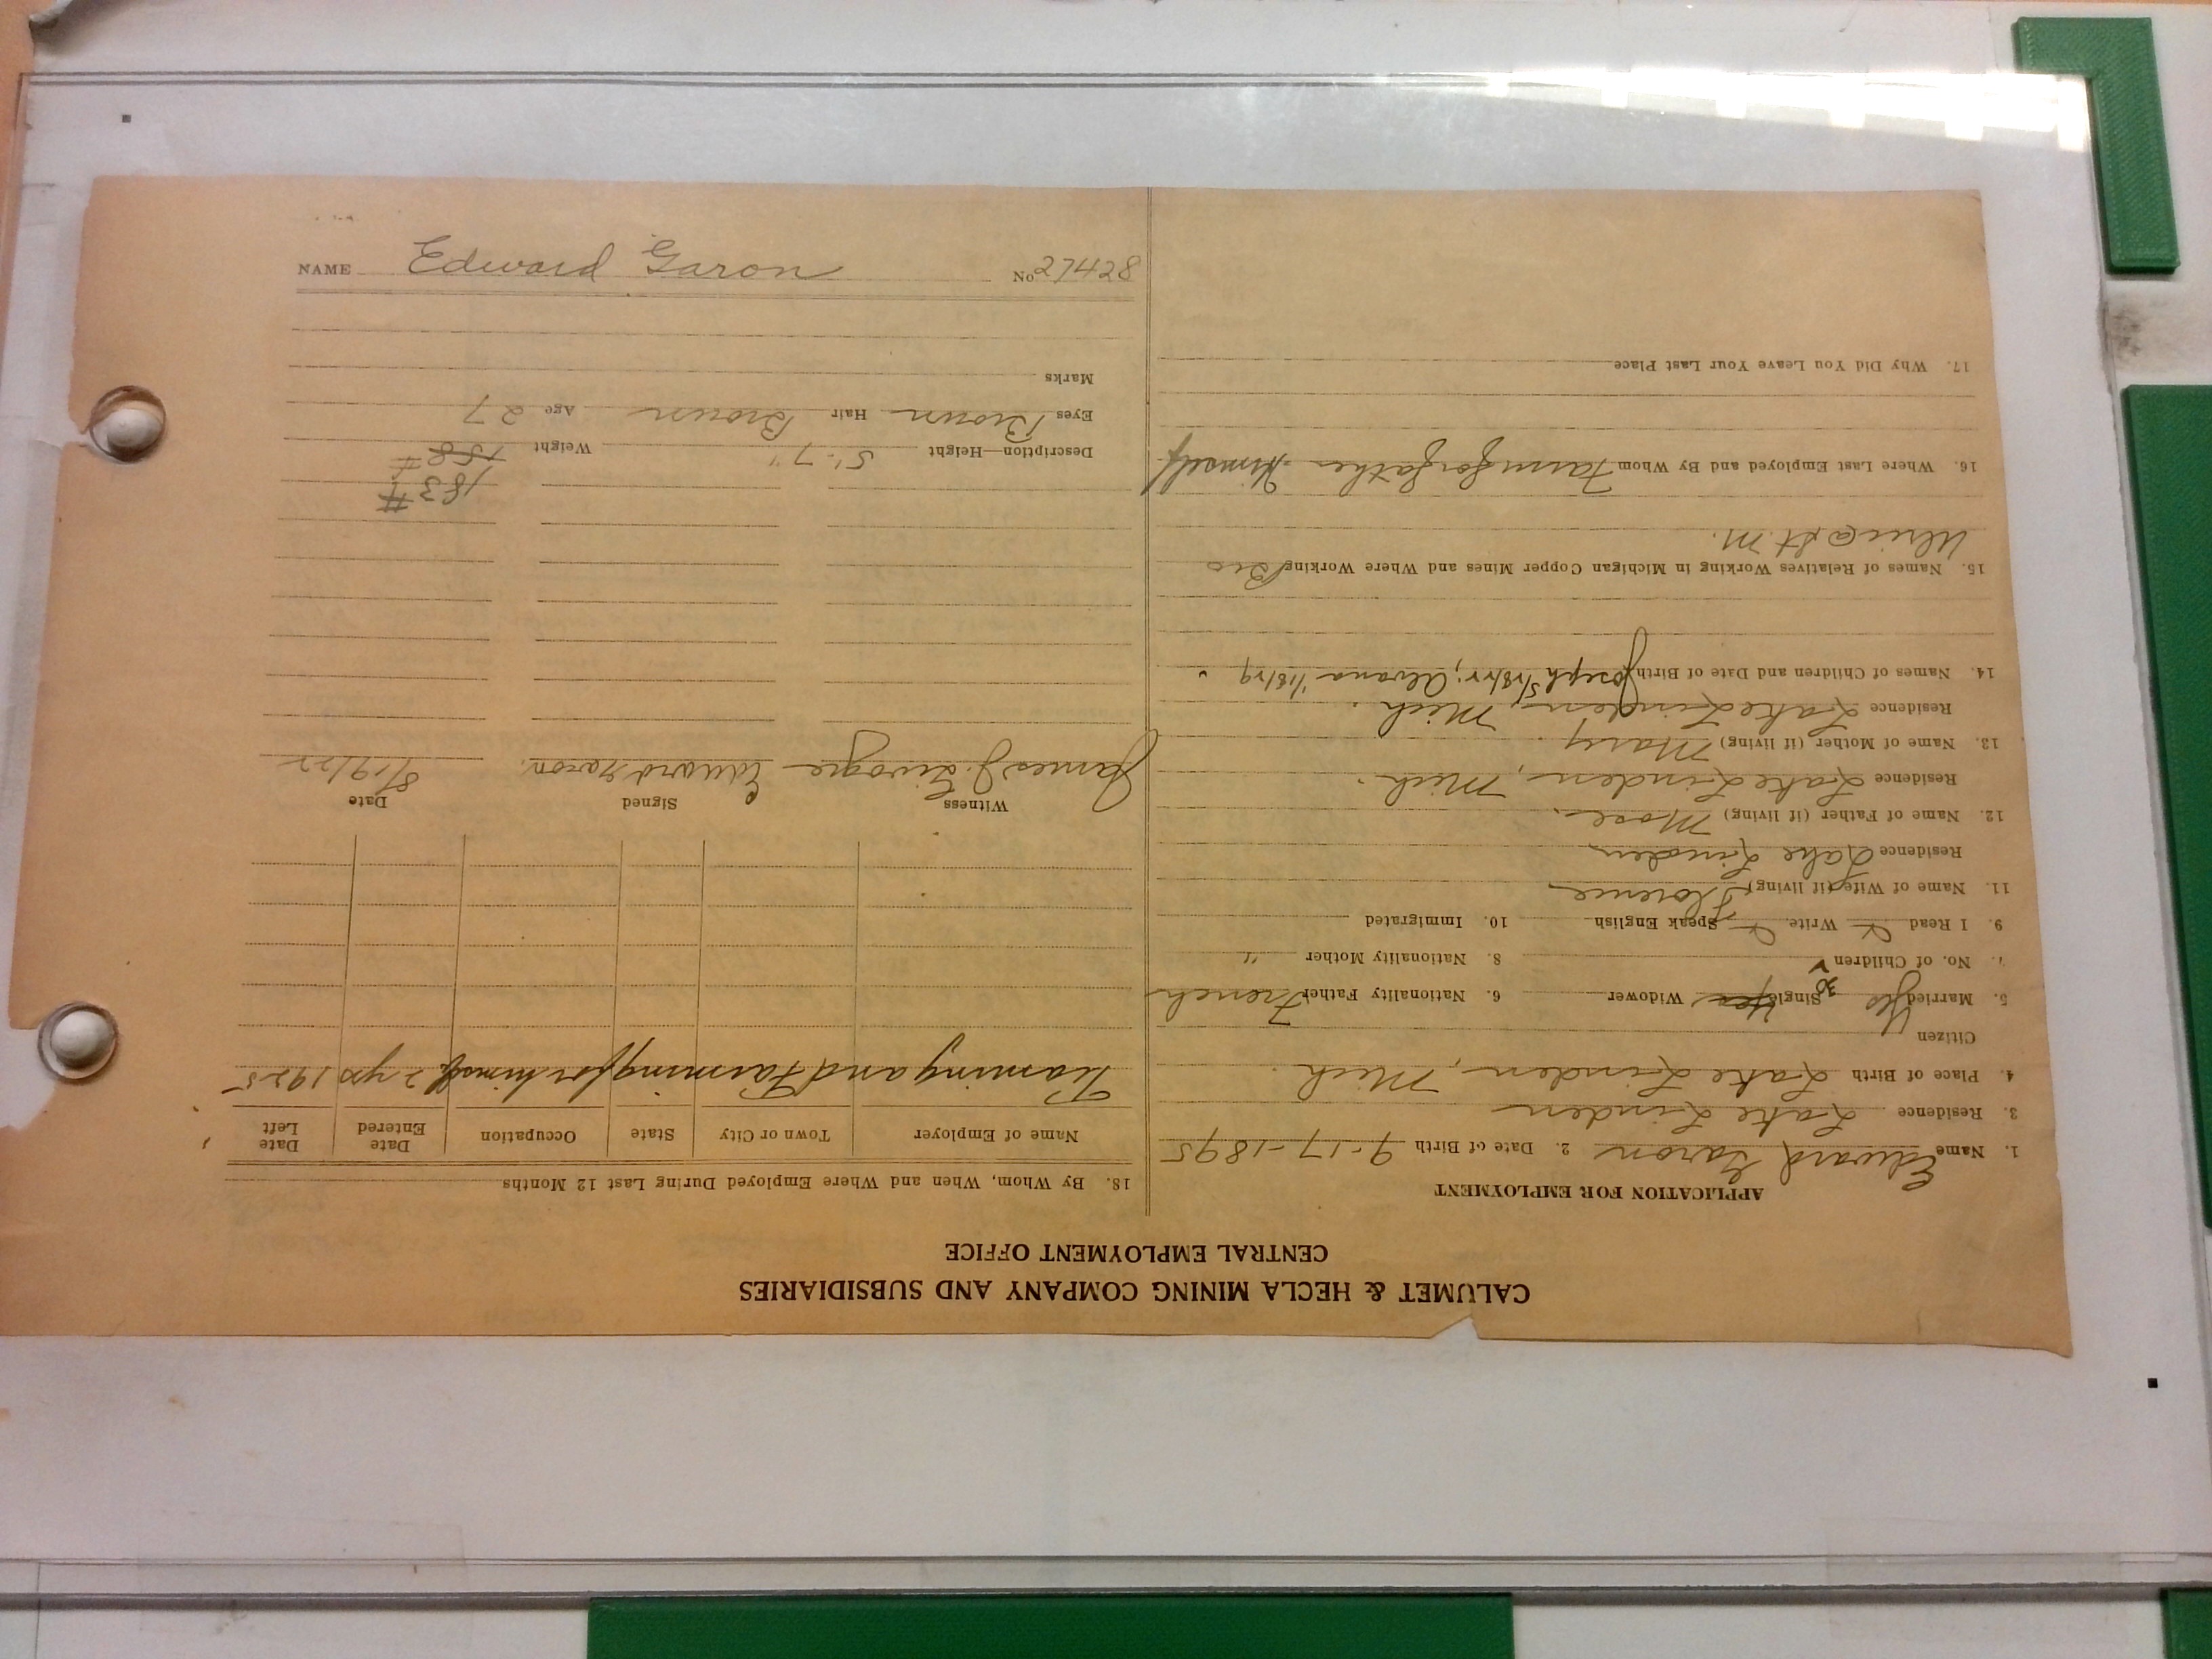 CALUMET & HECLA MINING COMPANY AND SUBSIDIARIES
CENTRAL EMPLOYMENT OFFICE
APPLICATION FOR EMPLOYMENT
1. Name Edward Garon 2. Date of Birth 9-17-1895
3. Residence Lake Linden
4. Place of Birth Lake Linden, Mich.
Citizen
5. Married Yes Single Yes Widower 6. Nationality Father French
30
7. No. of Children 8. Nationality Mother "
9. I Read Write Speak English 10. Immigrated
11. Name of Wife (if living) Florence
Residence Lake Linden
12. Name of Father (if living) Mose.
Residence Lake Linden, Mich.
13. Name of Mother (if living) Mary.
Residence Lake Linden, Mich.
14. Names of Children and Date of Birth Joseph 5/18/22; Alvana 1/18/29
15. Names of Relatives Working in Michigan Copper Mines and Where Working Bro
Ulric @ St. M.
16. Where Last Employed and By Whom Farm for father Himself
17. Why Did You Leave Your Last Place
18. By Whom, When and Where Employed During Last 12 Months
Name of Employer Town or City State Occupation Date Entered Date Left
Teaming and Farming for himself 2 yrs 1925
Witness Signed Date
James J. Edward Garon. 8/19/22
183 #
Description—Height 5'-7" Weight 158 #
Eyes Brown Hair Brown Age 27
Marks
NAME Edward Garon No 27428